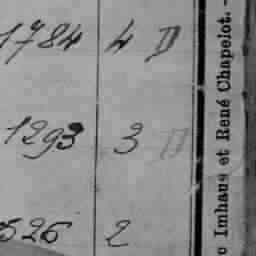 1784 4 D
1293 3 D
526 2
Imhaus et René Chapelot. -